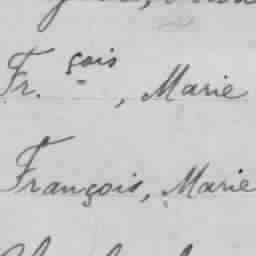 Fr.çois, Marie
François, Marie